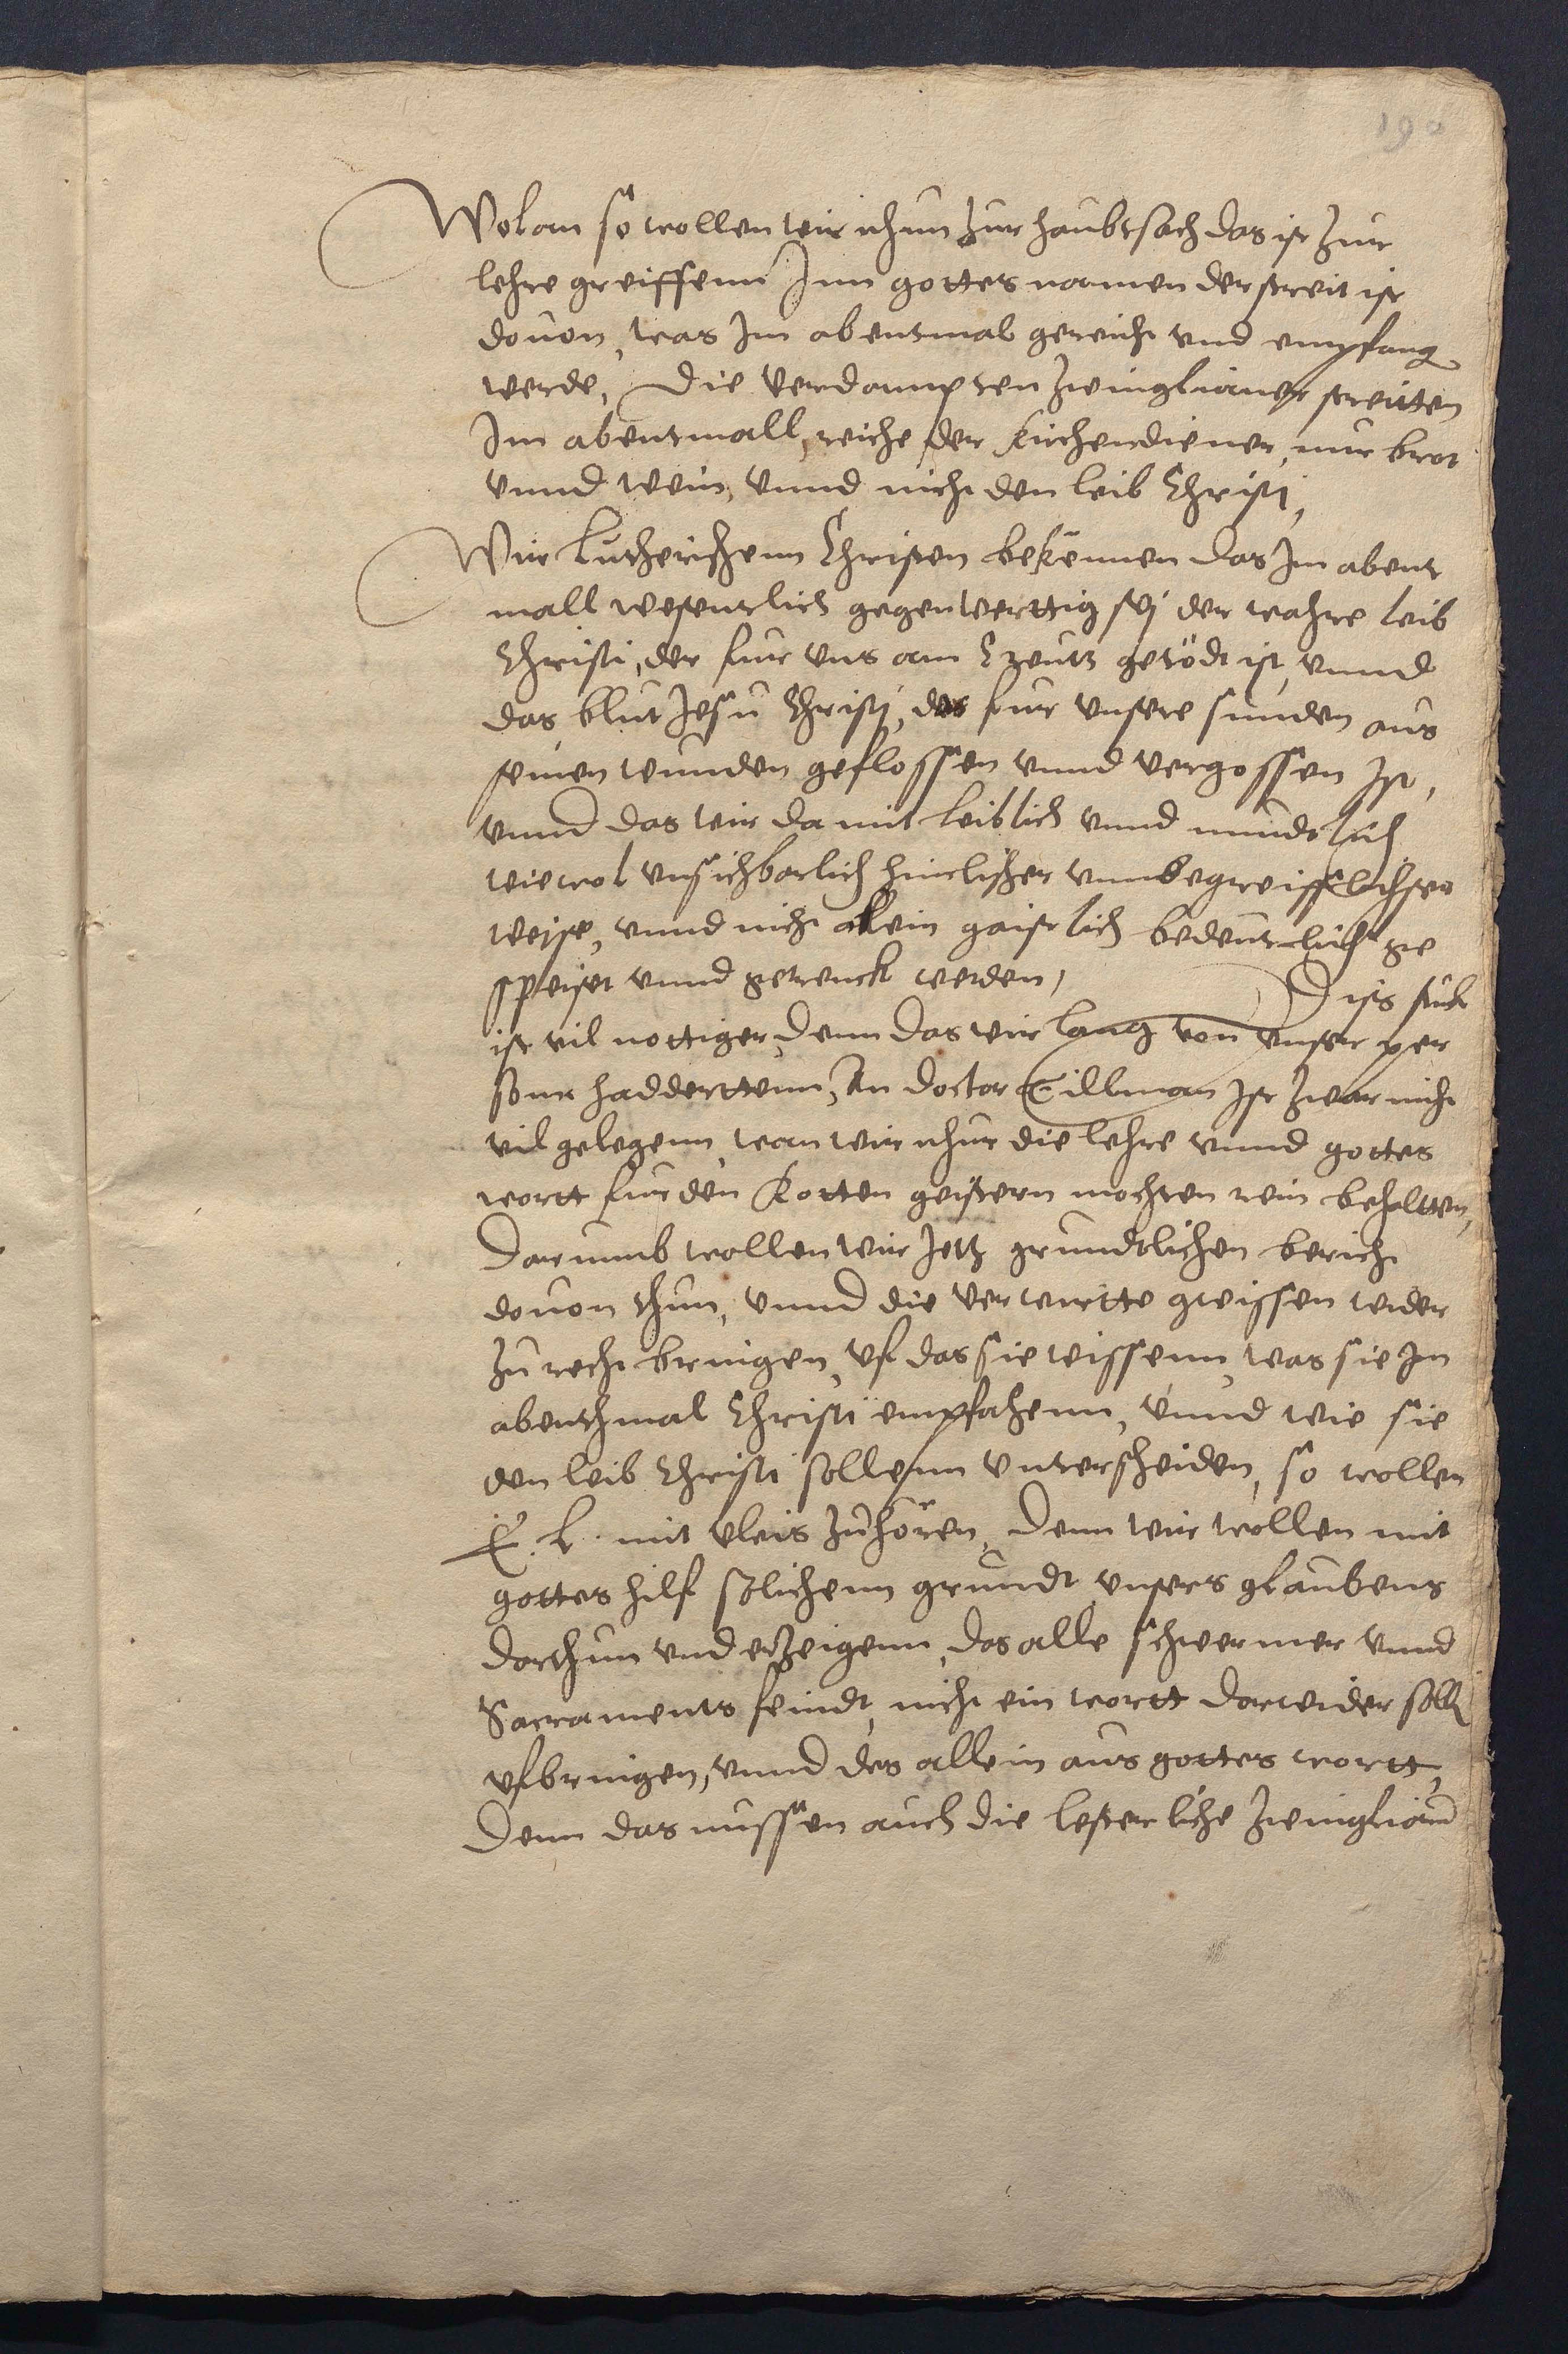 190
Wolan so wollen wir nhun zur haubtsach das ist zur
lehre greiffenn Inn gottes namen der streit ist
douon, was Im abentmal gereicht vnd empfang
werde, Die verdampten Zwinglianer streitten
Im abentmall, reiche der Kirchendiener, nur brot
vnnd wein, vnnd nicht den leib Christi,
Wir Lutherischenn Christen bekennen das Im abent
mall wesentlich gegenwerttig sej der wahre leib
Christi, der fur vns am Creutz getödt ist, vnnd
das blut Jesu Christi, das fur vnsere sunden aus
seinen wunden geflossen vnnd vergossen Ist,
vnnd das wir da mit leiblich vnnd mundtlich
wiewol vnsichbarlich himlischer vnnbegreifflichster
weise, vnnd nicht allein gaistlich bedeutlich ge
speiset vnnd getrenckt werden, Diss stuck
ist vil nottiger, denn das wir lang von vnser per
sonn hadderttenn, An doctor Tillman Ist zwar nicht
vil gelegenn, wan wir nhur die lehre vnnd gottes
wortt fur den Rotten geistern mochten rein behaltten,
Darumb wollen wir Jetz gruntlichen bericht
douon thun, vnnd die verwirtte gwissen wider
zu recht bringen, vf das sie wissenn, was sie Im
abenthmal Christi empfahenn, vnnd wie sie
den leib Christi sollenn vnterscheiden, so wollen
E. L. mit vleis zuhören, Denn wir wollen mit
gottes hilf solichenn grundt vnsers glaubens
darthun vnd erzeigenn, das alle schwermer vnnd
Sacraments feindt, nicht ein wortt darwider soll
vfbringen, vnnd des allein aus gottes wortt,
Denn das mussen auch die lesterliche Zwinglian